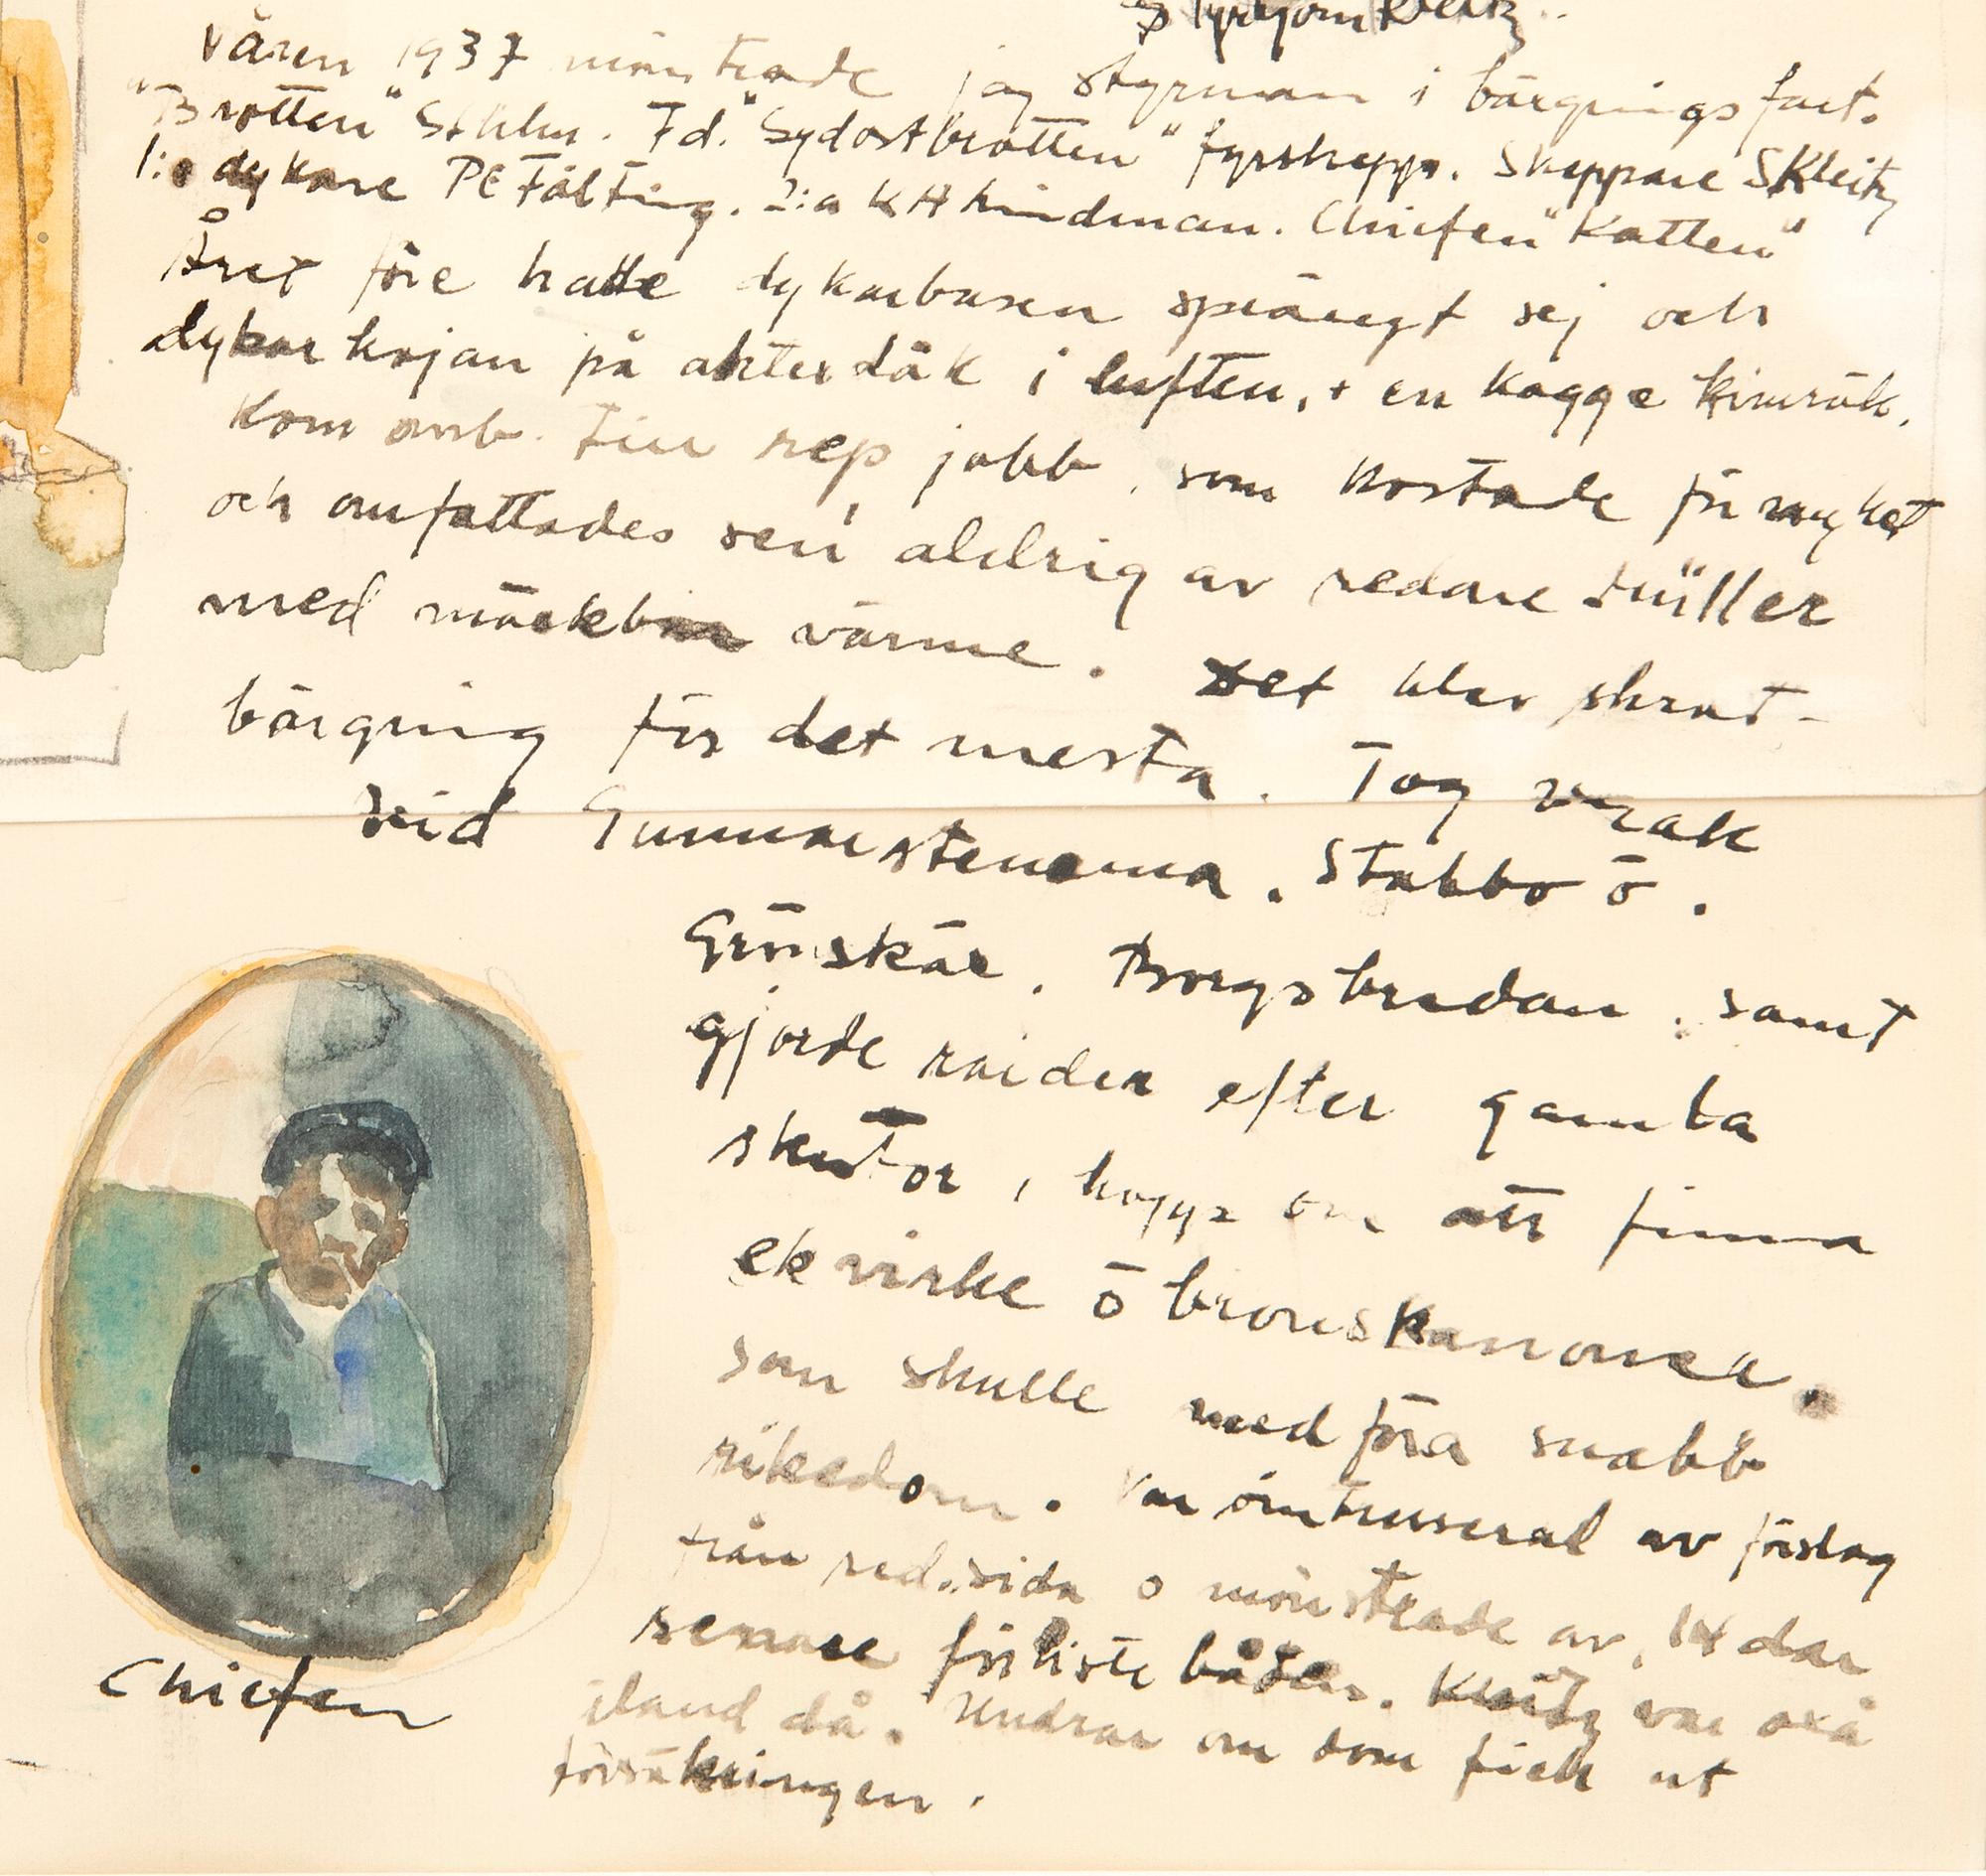 Styrbjörn Kleitz.
Våren 1937 mönstrade jag styrman i bärgningsfart.
"Brotten" Sthlm. Fd. "Sydostbrotten" fyrskepp. Skeppare SKleitz
1:e dykare PE Fälting. 2:a KH Lindman. Chiefen "Katten"
Året före hade dykarbasen sprängt sej och
dykarkojan på akterdäk i luften, + en kagge kimrök.
Kom omb. för rep jobb, som kostade för myket
och omfattades sen aldrig av redare Müller
med märkbar värme. Det blev skrot-
bärgning för det mesta. Tog vrak
vid Gunnarstenarna. Stabbo ö.
Grönskär. Borgsbredan, samt
gjorde raider efter gamla
skutor, hopp om att finna
ekvirke ö bronskanoner.
som skulle medföra snabb
rikedom. Var ointresserad av förslag
från red.sida o mönstrade av, 14 dar
senare förliste båten. Kleitz var oxå
iland då. Undrar om dom fick ut
försäkringen.
Chiefen